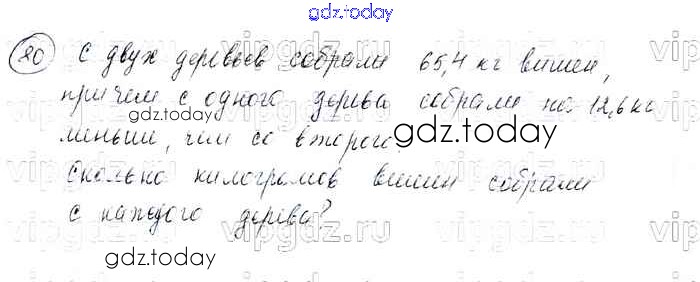 gdz.today
80 С двух деревьев собрали 65,4 кг вишен,
причем с одного дерева собрали на 12,6 кг
gdz.today
меньше, чем со второго.
gdz.today
Сколько килограмов вишен собрали
с каждого дерева?
gdz.today
vipgdz.ru